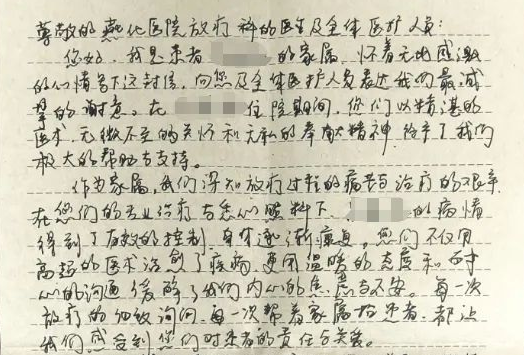 尊敬的燕化医院放疗科的医生及全体医护人员:
您好,我是患者 的家属,怀着无比感激
的心情写下这封信,向您及全体医护人员表达我们最诚
挚的谢意。在 住院期间,你们以精湛的
医术,无微不至的关怀和无私的奉献精神,给予了我们
极大的帮助与支持。
作为家属,我们深知放疗过程的病苦与治疗的艰辛,
在您们的专业治疗与悉心照料下, 的病情
得到了有效的控制,身体逐渐康复。您们不仅用
高超的医术治愈了疾病,更用温暖的态度和耐
心的沟通缓解了我们内心的焦虑与不安。每一次
放疗的细致询问,每一次帮着家属抬患者,都让
我们感受到您们对患者的责任与关爱。